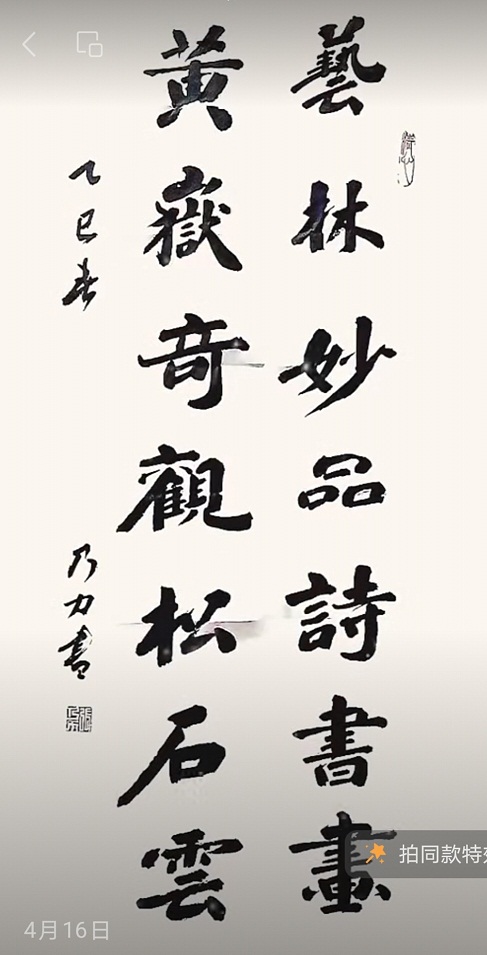 藝林妙品詩書畫
黃嶽奇觀松石雲
乙巳春
乃力書
拍同款特
4月16日